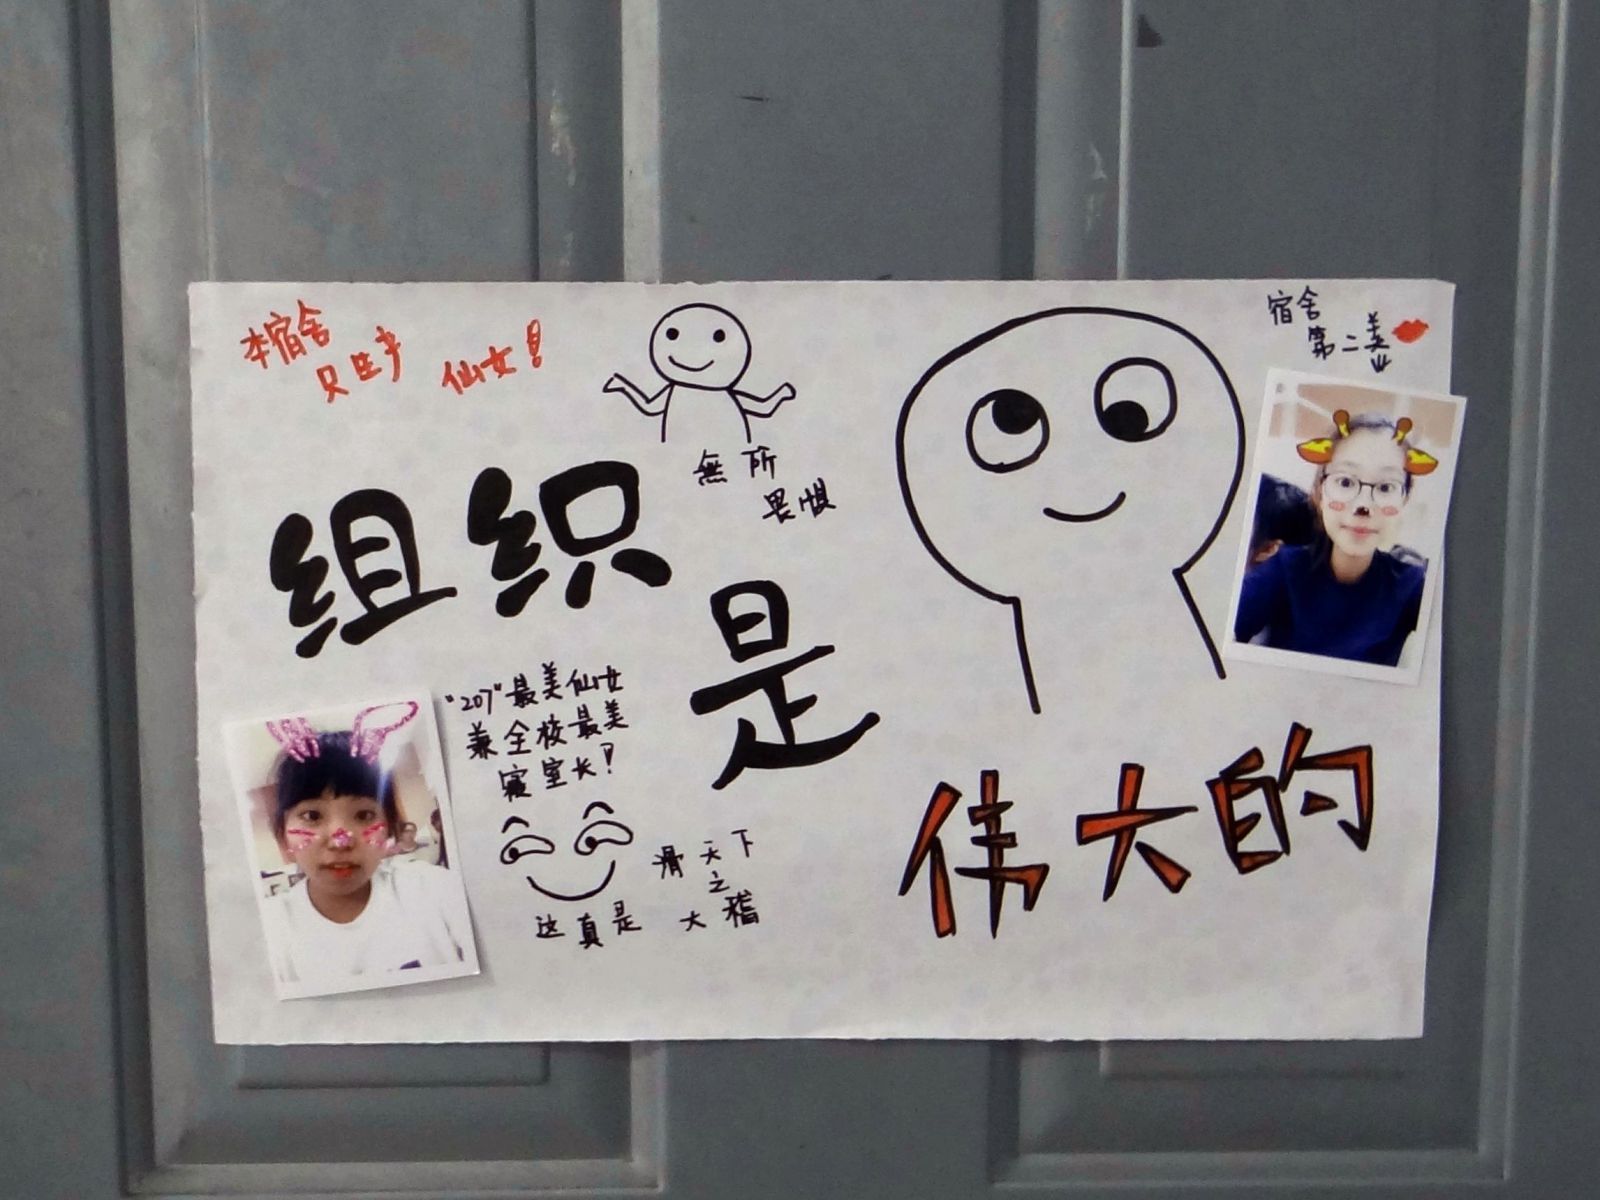 本宿舍
只生产
仙女！
無所
畏惧
宿舍
第二美
组织
是
伟大的
"207"最美仙女
兼全校最美
寝室长！
这真是
滑天下
之
大稽